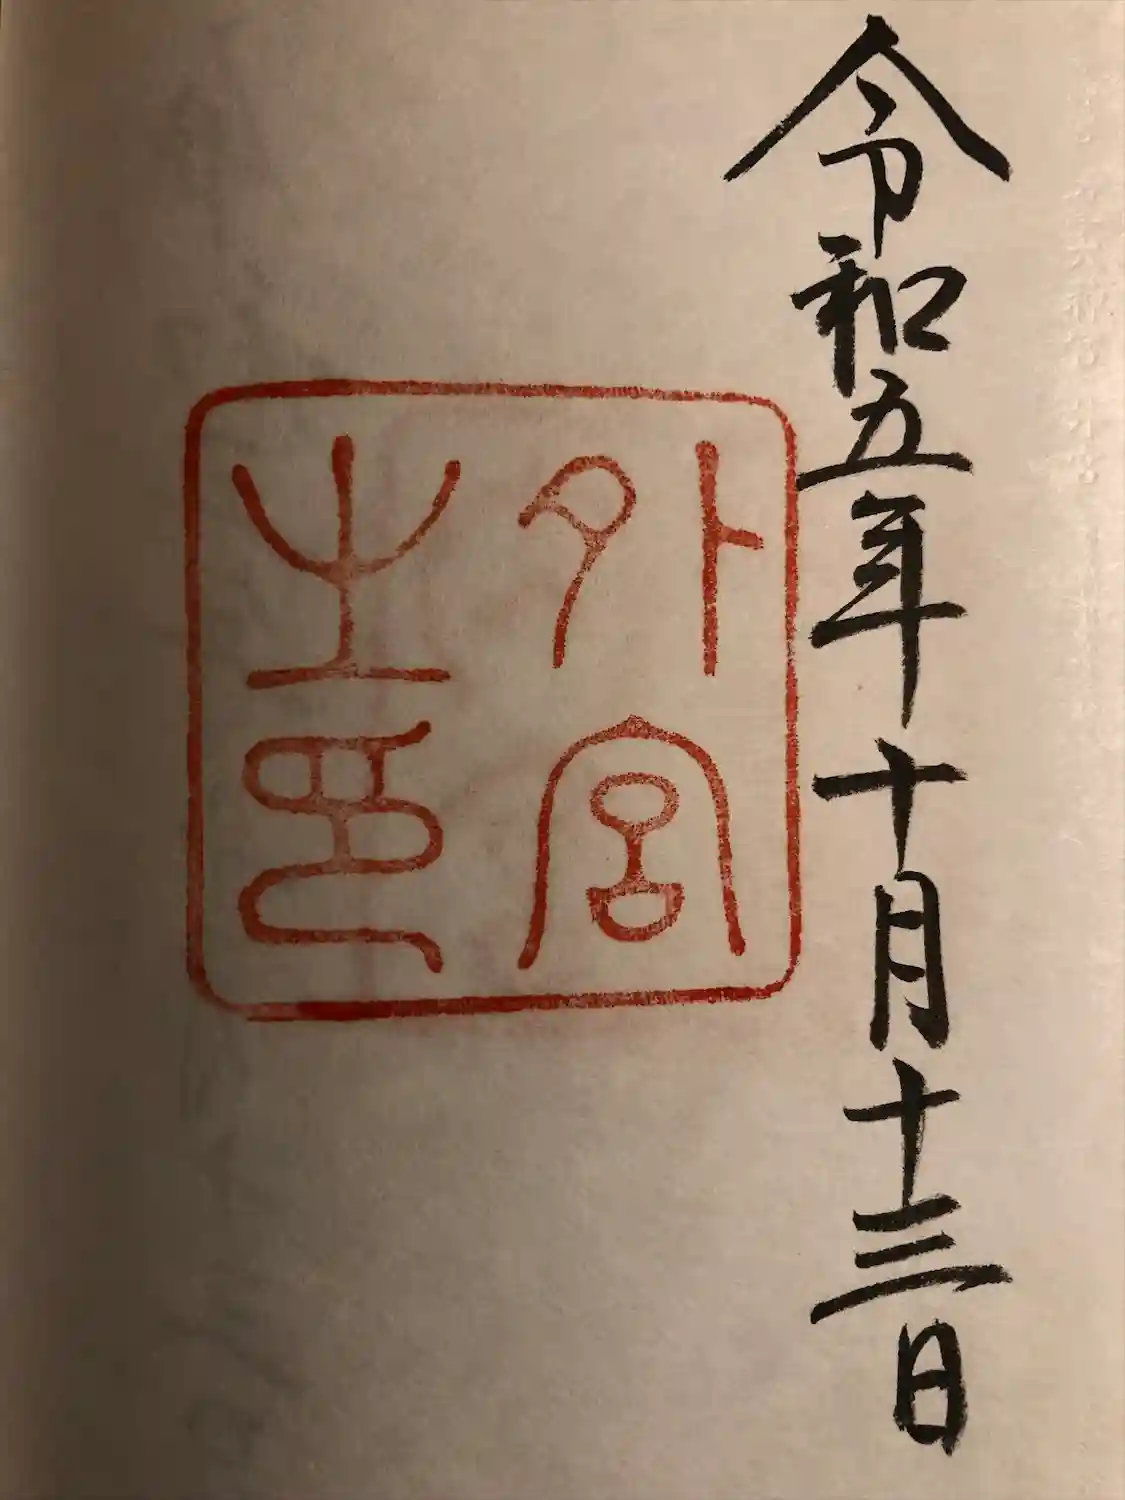 令和五年十月十三日
外宮
之印